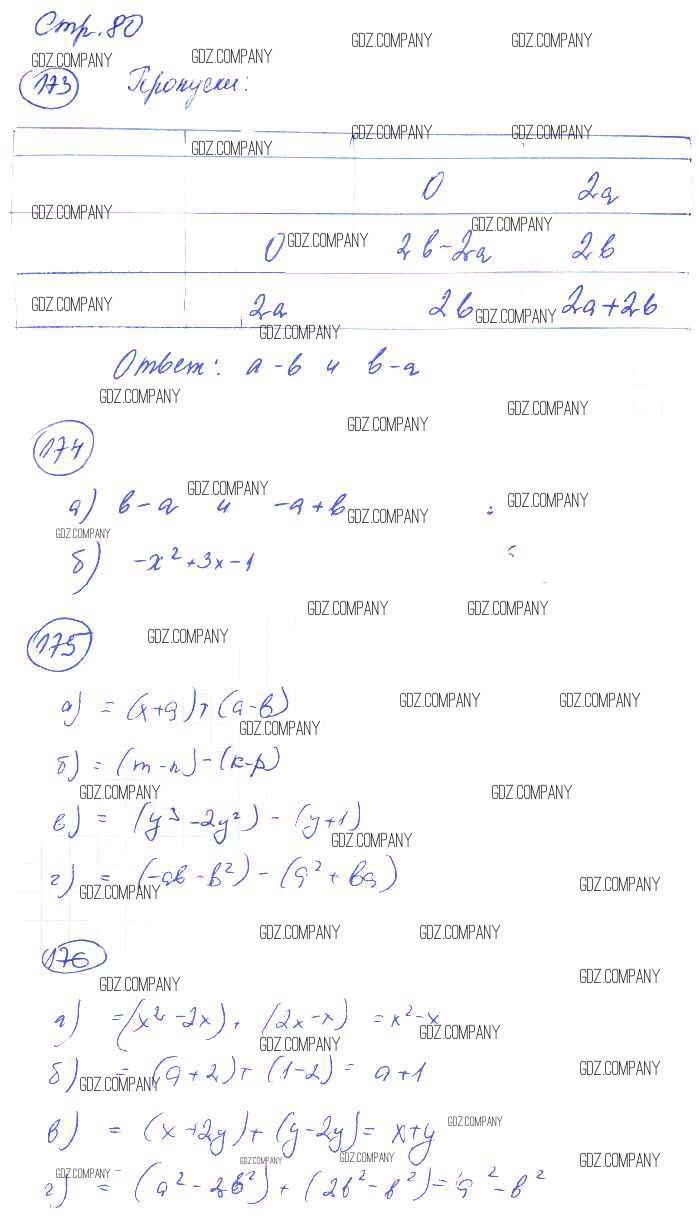 Стр. 80
GDZ.COMPANY GDZ.COMPANY
GDZ.COMPANY GDZ.COMPANY
173 Пропуски:
GDZ.COMPANY GDZ.COMPANY GDZ.COMPANY
0 2a
GDZ.COMPANY GDZ.COMPANY
0 GDZ.COMPANY 2b-2a 2b
GDZ.COMPANY 2a 2b GDZ.COMPANY 2a+2b
GDZ.COMPANY
Ответ: a-b и b-a
GDZ.COMPANY GDZ.COMPANY
GDZ.COMPANY
174
GDZ.COMPANY
а) b-a и -a+b GDZ.COMPANY GDZ.COMPANY
GDZ.COMPANY
б) -x²+3x-1
GDZ.COMPANY GDZ.COMPANY
175 GDZ.COMPANY
а) = (x+a)+(a-b) GDZ.COMPANY GDZ.COMPANY
GDZ.COMPANY
б) = (m-n)-(k-p)
GDZ.COMPANY GDZ.COMPANY
в) = (y³-2y²)-(y+1)
GDZ.COMPANY
г) = (-ab-b²)-(a²+ba)
GDZ.COMPANY GDZ.COMPANY
GDZ.COMPANY GDZ.COMPANY
176
GDZ.COMPANY GDZ.COMPANY
а) =(x²-2x)+(2x-x) =x²-x
GDZ.COMPANY GDZ.COMPANY
б) = (a+2)+(1-2)= a+1
GDZ.COMPANY GDZ.COMPANY
в) = (x+2y)+(y-2y)= x+y GDZ.COMPANY
GDZ.COMPANY GDZ.COMPANY GDZ.COMPANY GDZ.COMPANY
г) = (a²-2b²)+(2b²-b²)=a²-b²